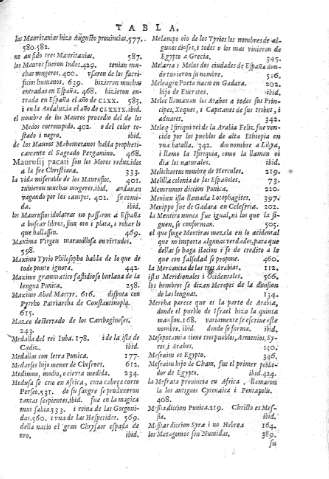 TABLA.
las Mauritanias hizo Augusto prouincias. 577.
580. 582.
no an sido tres Mauritanias, 587.
los Mauros fueron Indos. 429. tenian muchas mugeres. 400. vsaron de los sacrificios humanos. 639. hizieron
entradas en España. 468. hizieron entrada en España el año de CLXX. 587.
i en la Andaluzia el año de CLXXIX. ibid.
el nombre de los Mauros procedio del de los
Medos corrompido. 402. o del color tostado i negro, ibid.
de los Mauros Mahometanos habla propheticamente el Sagrado Pergamino, 468.
Maurusij pacati son los Mauros reduzidos
a la fe Christiana, 333.
la vida miserable de los Maurusios, 401.
tuuieron muchas mugeres. ibid. andauan
vagando por los campos. 402. su comida, ibid.
los Maurusios idolatras no passaron a España
a buscar libros, sino oro i plata, i robar lo
que hallassen. 469.
Maxima Virgen marauillosa en virtudes.
598.
Maximo Tyrio Philosopho habla de lo que de
todo ponto ignora, 442.
Maximo grammatico fastidioso burlaua de la
lengua Punica, 258.
Maximo Abad Martyr. 616. disputa con
Pyrrho Patriarcha de Constantinopla.
615.
Mazeo desterrado de los Carthagineses.
243.
Medalla del rei Iuba. 178. i de la isla de
Cadiz, ibid.
Medallas con letra Punica, 177.
Medarse hijo menor de Chosroes, 612.
Medimno, modio, o cierta medida. 234.
Medusa se cria en Africa, cuya cabeça corto
Perseo. 531. de su sangre se produxeron
tantas serpientes. ibid. fue en la magia
mui sabia. 333. i reina de las Gorgonidas. 560. i reina de las Hesperides. 569.
della nacio el gran Chrysaor español de
oro, ibid.
Melampo año de los Tyrios los nombres de algunos dioses, i todos o los mas vinieron de
Egypto a Grecia, 345.
Melaria i Melos dos ciudades de España donde tuuieron su nombre, 516.
Melcagro Poeta nacio en Gadara, 202.
hijo de Eucrates, ibid.
Melec llamauan los Arabes a todos sus Principes, Xeques, i Capitanes de sus tribus, i
aduares, 342.
Meleg Ifriqui rei de la Arabia Felix, fue vencido por los pueblos de alta Ethiopia en
vna batalla. 342. dio nombre a Libya,
i llamo la Ifriquia, como la llaman oi
dia los naturales, ibid.
Melicharto nombre de Hercules, 219.
Melilla colonia de los Españoles, 75.
Memrumo diccion Punica, 220.
Menix isla llamada Lotophagites, 397.
Menippo fue de Gadara en Celesyria. 202.
la Mentira nunca fue igual, ni los que la siguen, se conforman, 505.
el que finge Mentiras mezcla en lo accidental
que no importa algunas verdades, para que
dellas se haga juizio i se de credito a lo
que con falsedad se propone, 460.
la Mercancia de las tres Arabias, 112.
islas Meridionales i Occidentales, 566.
los hombres se dizen Meropes de la diuision
de las lenguas, 134.
Mersha parece que es la parte de Arabia,
donde el pueblo de Israel hizo la quinta
mansion. 168. variamente se escriue este
nombre. ibid. donde se forma, ibid.
Mesopotamia tiene tres pueblos, Armenios, Syros, i Arabes, 140.
Mesraim es Egypto, 346.
Mesraim hijo de Cham, fue el primer poblador de Egypto, ibid.
la Mesrata prouincia en Africa, llamaron
la los antiguos Cyrenaica i Pentapolis.
408.
Messias diccion Punica. 219. Christo es Messias, ibid.
Messias diccion Syra i no Helrea 164.
los Matagonos son Numidas, 389.
su